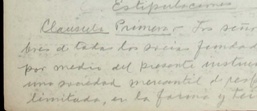 Estipulaciones
Clausula Primera - Los seño
res de todas los socios fundad
por medio del presente instrum
una sociedad mercantil de resp
limitada, en la forma y tér